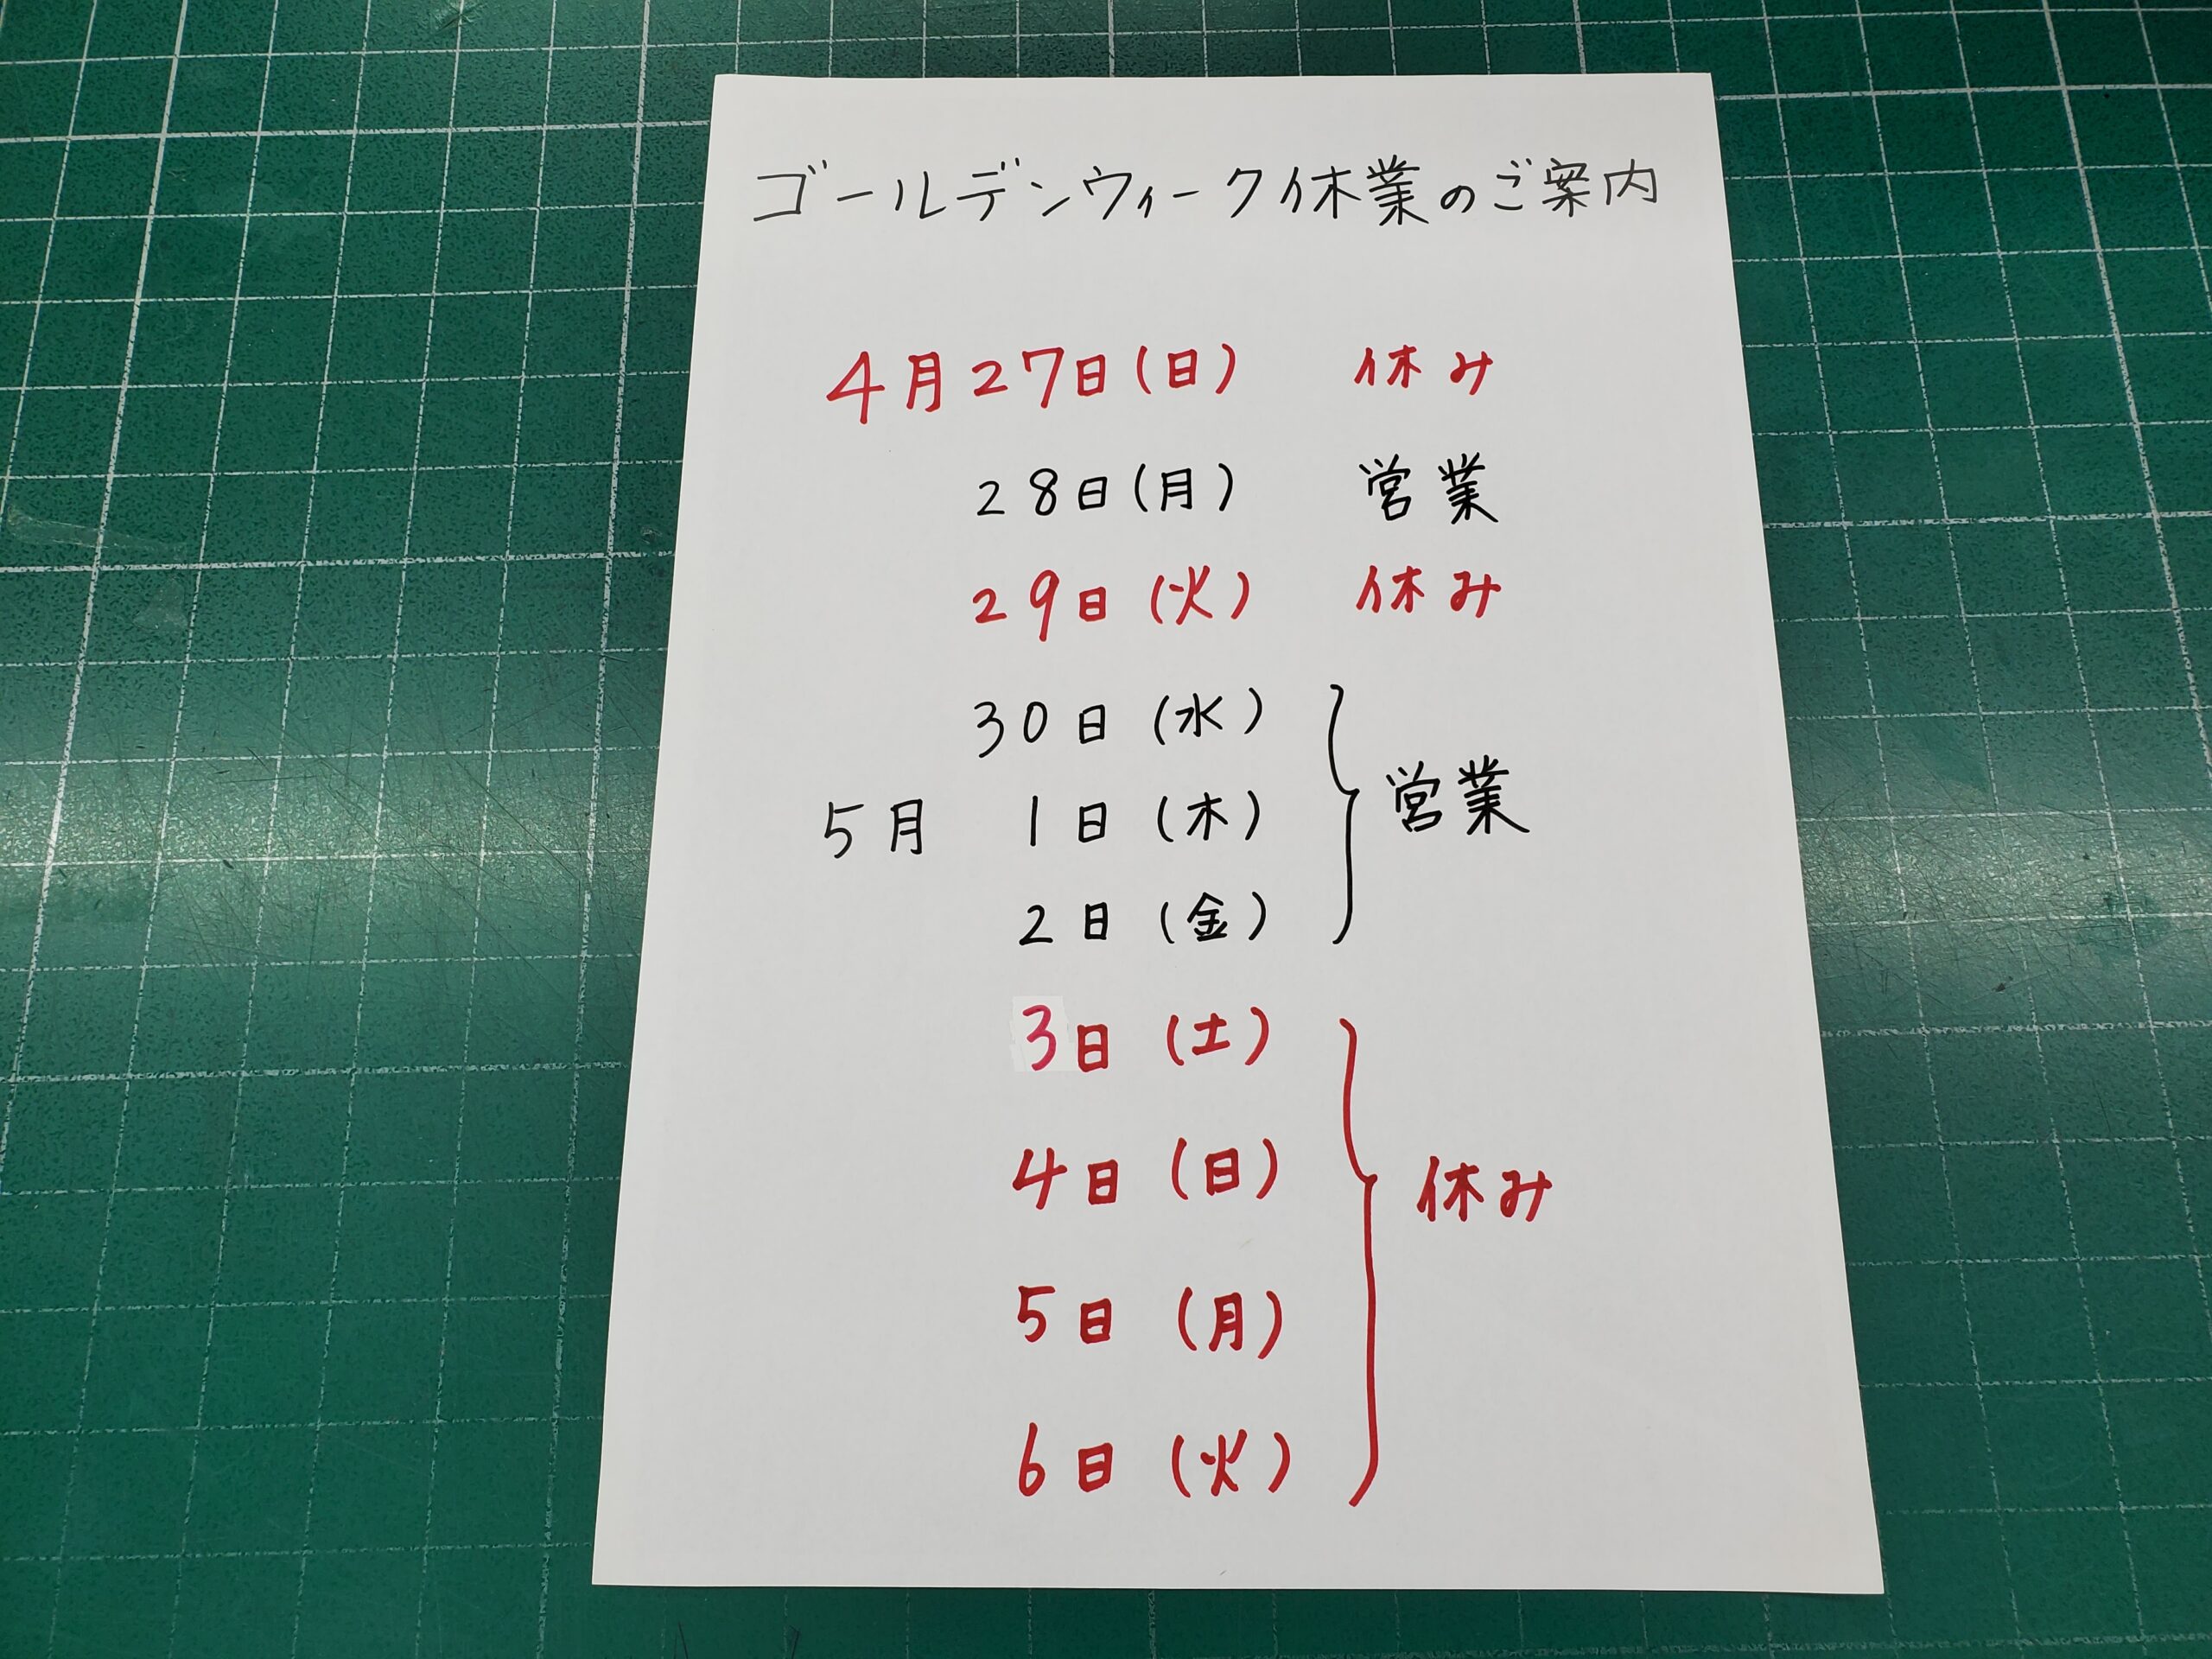 ゴールデンウィーク休業のご案内
4月27日(日) 休み
28日(月) 営業
29日(火) 休み
30日(水)
5月 1日(木) 営業
2日(金)
3日(土)
4日(日) 休み
5日(月)
6日(火)